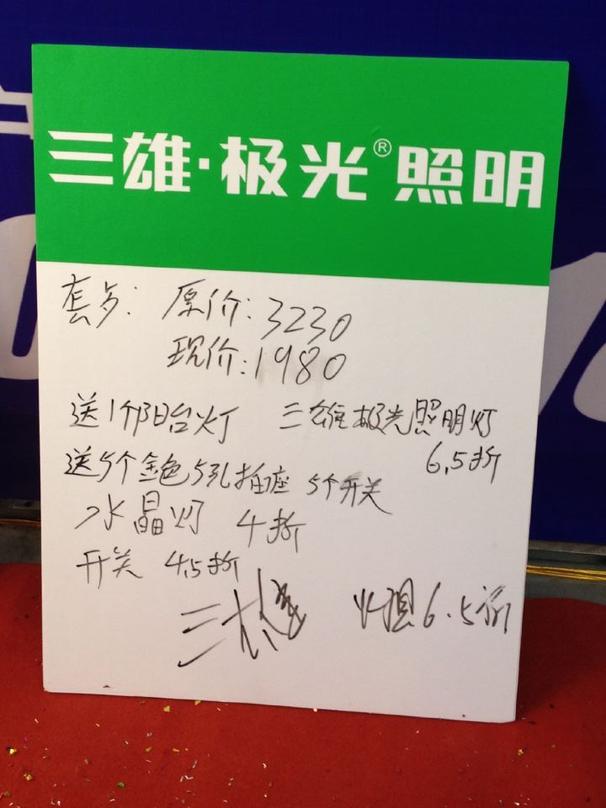 三雄·极光®照明
套多: 原价:3230
现价:1980
送1个阳台灯 三雄极光照明灯
6.5折
送5个金色5孔插座 5个开关
水晶灯 4折
开关 4.5折
三雄 6.5折